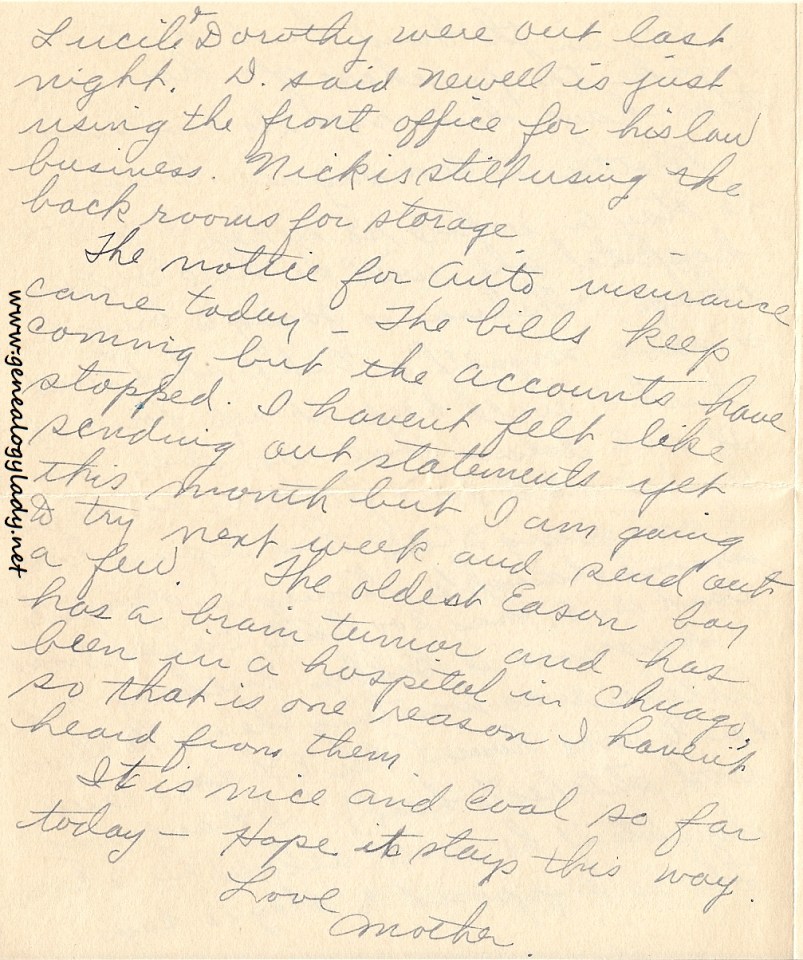 Lucile & Dorothy were out last
night. D. said Newell is just
using the front office for his law
business. Nick is still using the
back rooms for storage.
The nottie for auto insurance
came today – The bills keep
coming but the accounts have
stopped. I haven't felt like
sending out statements yet
this month but I am going
to try next week and send out
a few. The oldest Eason boy
has a brain tumor and has
been in a hospital in Chicago,
so that is one reason I haven't
heard from them
It is nice and cool so far
today – Hope it stays this way.
Love
Mother.
www.genealogylady.net